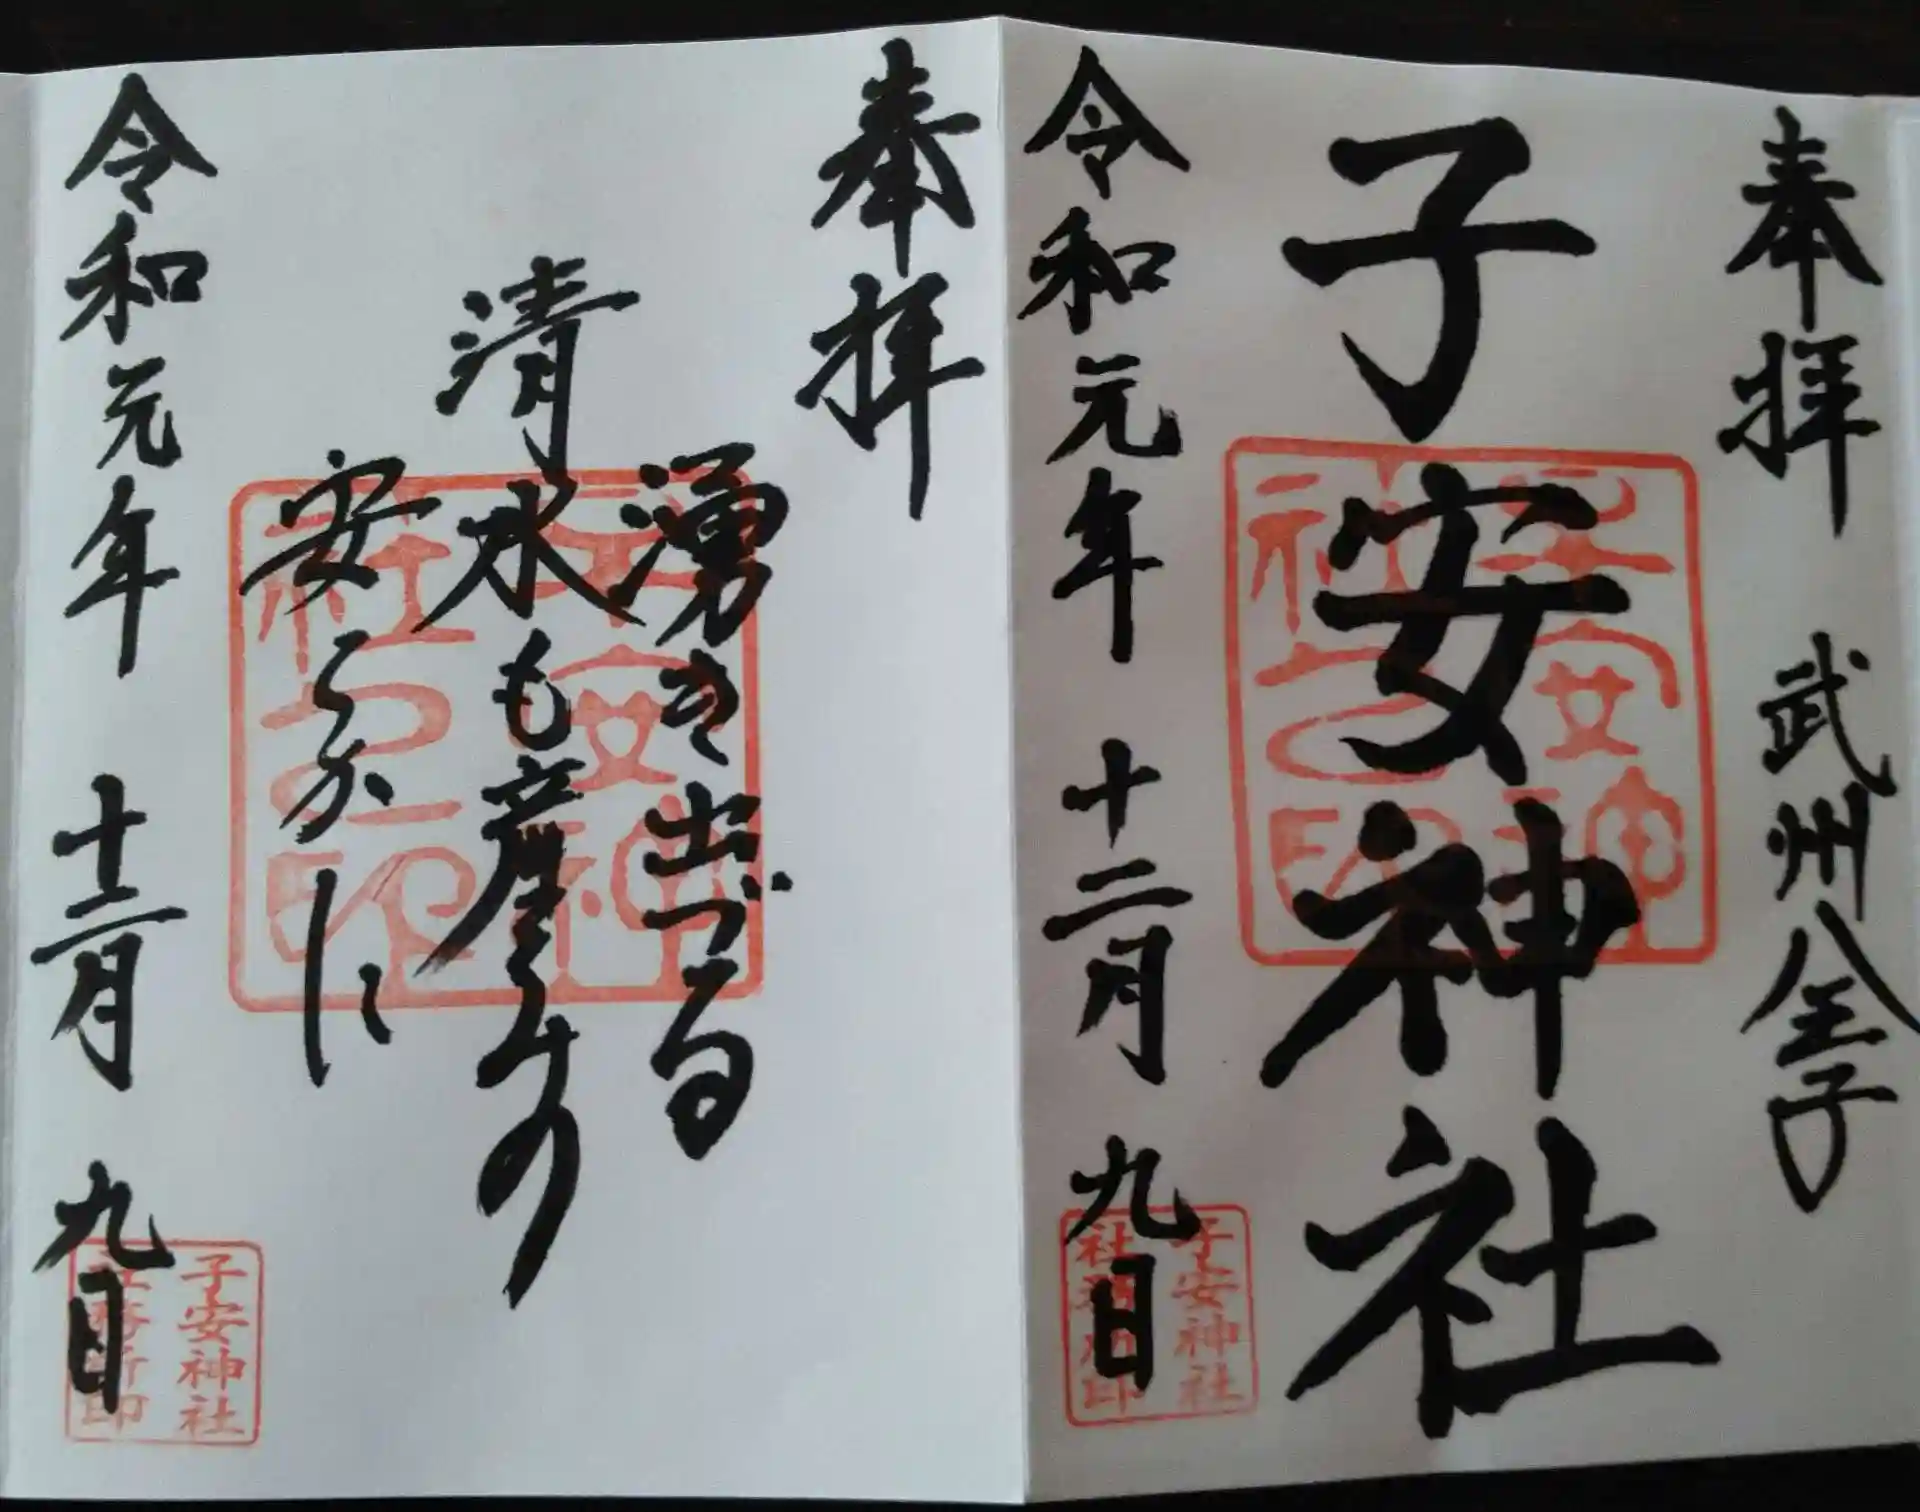 奉拝 武州八王子
子安神社
子安神社之印
令和元年 十二月 九日
子安神社
社務所印
奉拝
湧き出づる
清水も産る子の
安らかに
子安神社之印
令和元年 十二月 九日
子安神社
社務所印